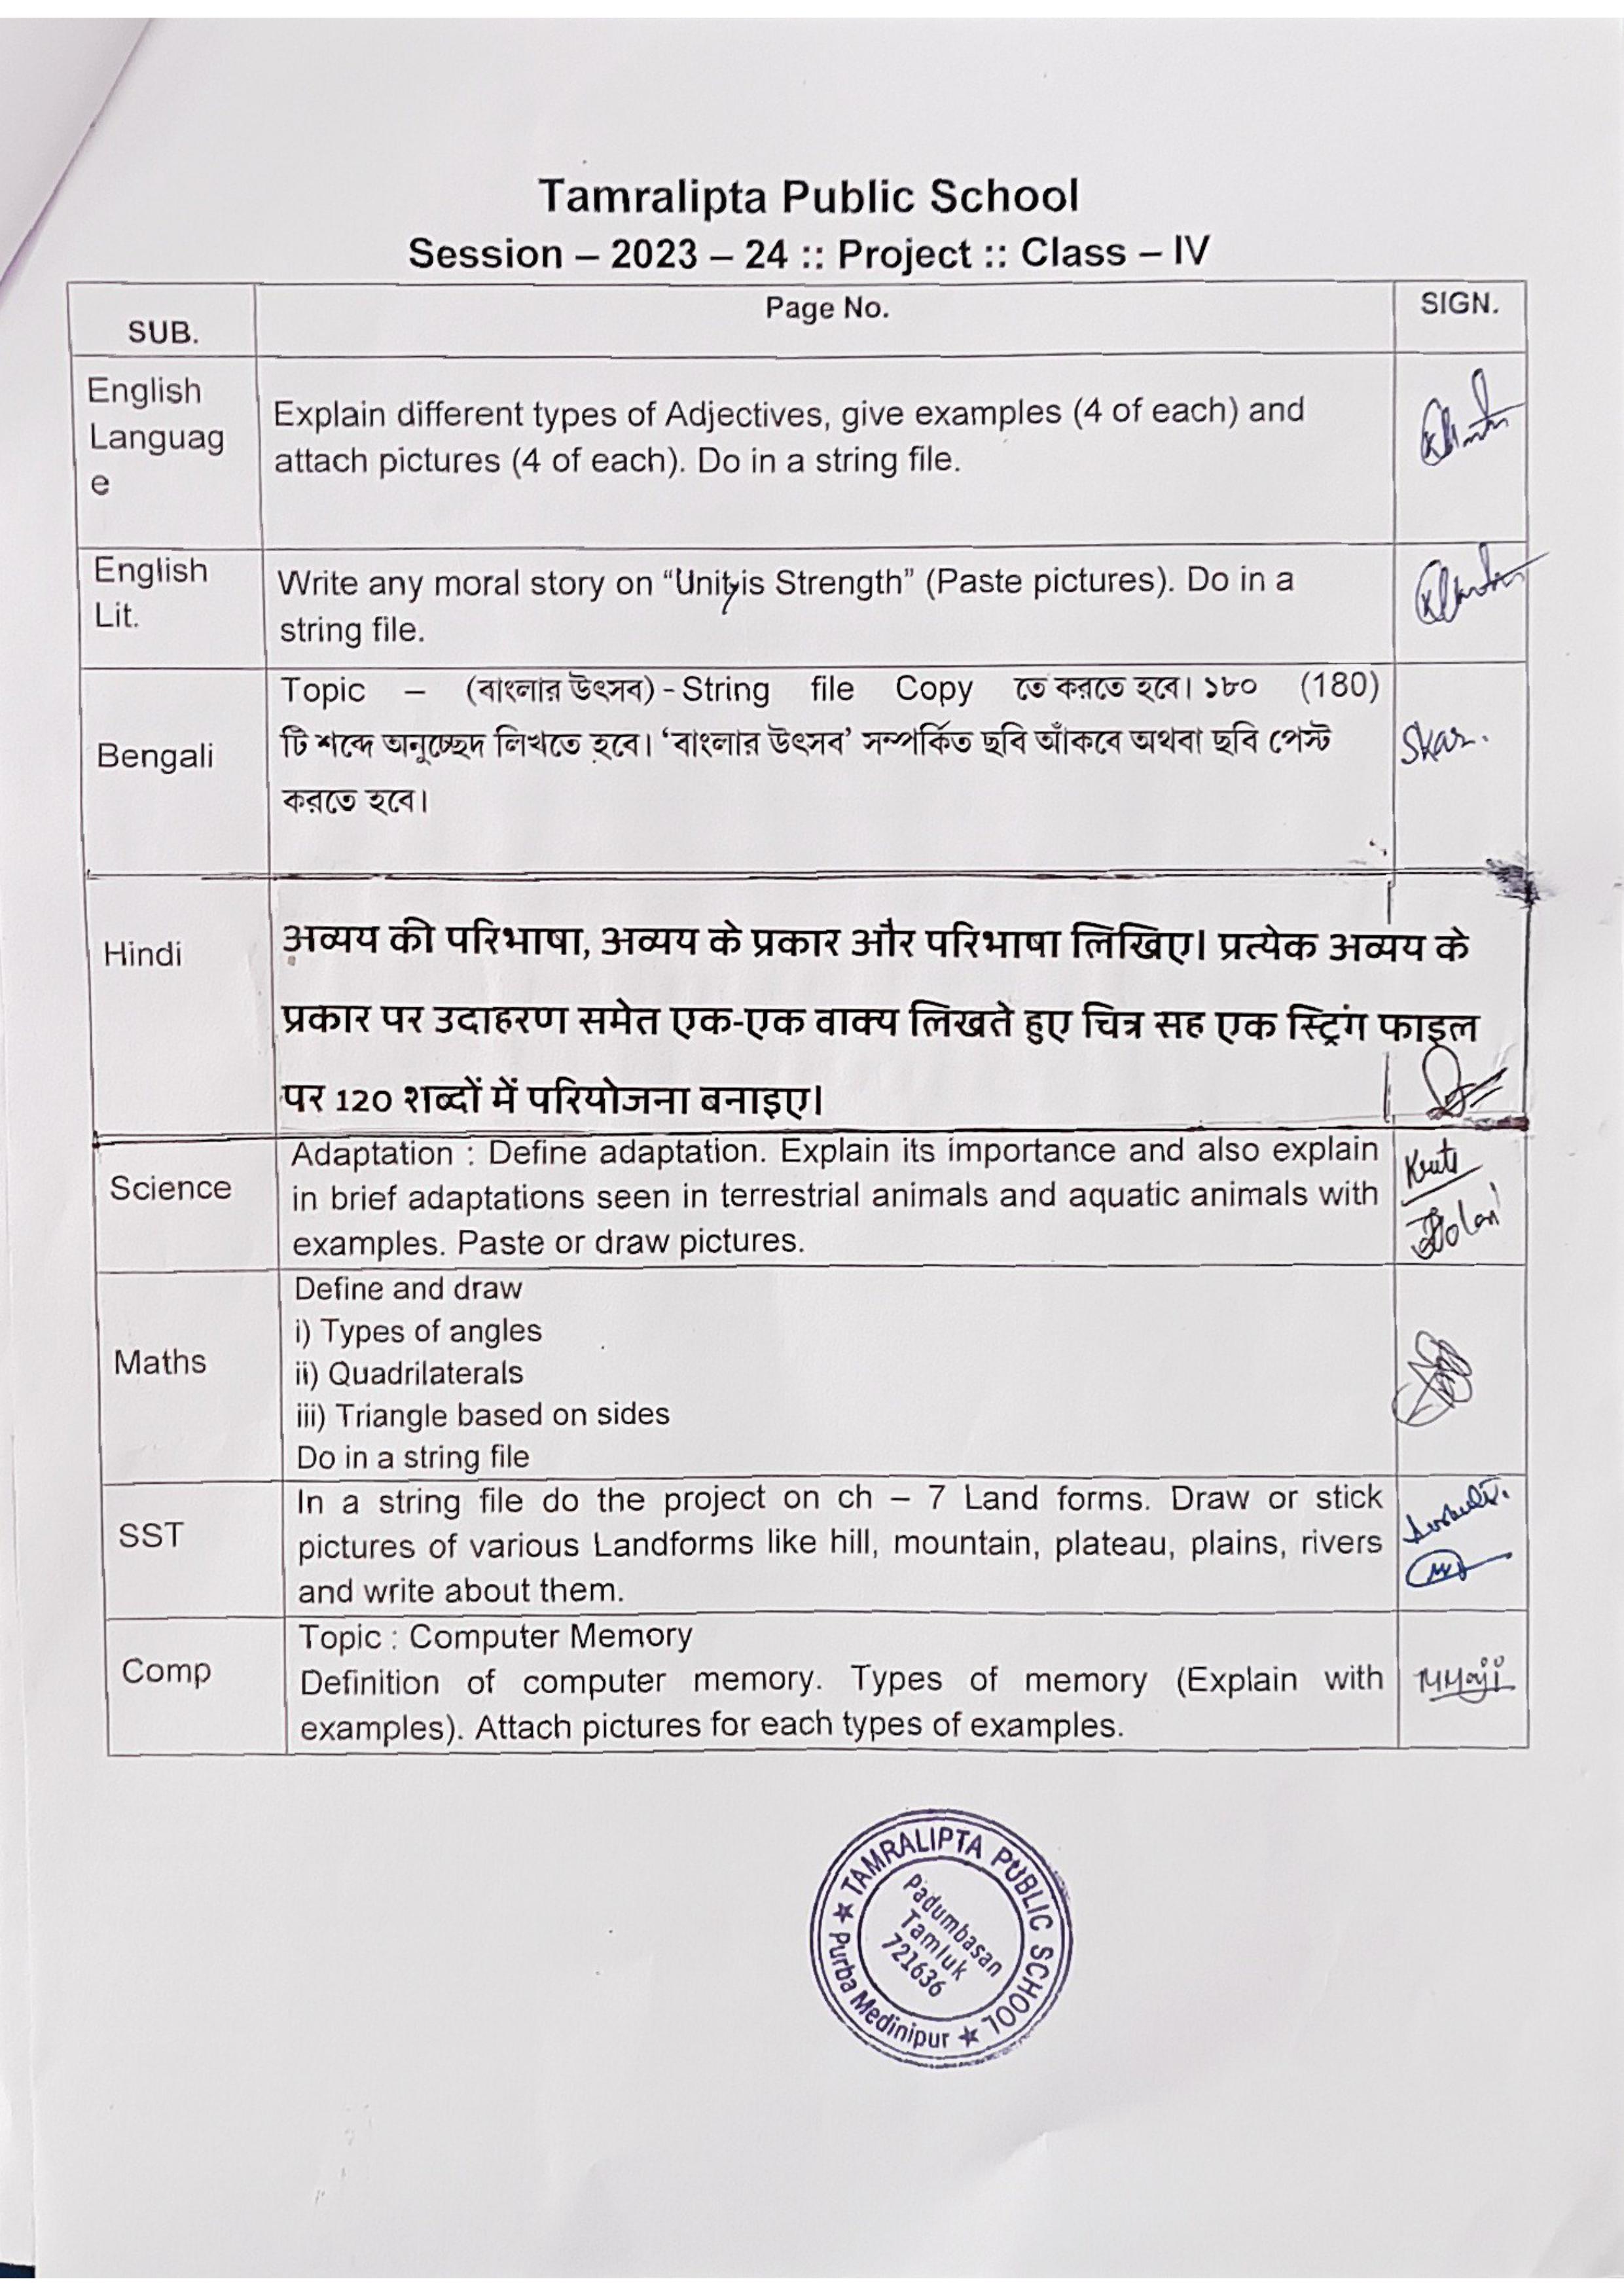 Tamralipta Public School
Session – 2023 – 24 :: Project :: Class – IV
SUB.
Page No.
SIGN.
English
Languag
e
Explain different types of Adjectives, give examples (4 of each) and
attach pictures (4 of each). Do in a string file.
English
Lit.
Write any moral story on “Unity is Strength” (Paste pictures). Do in a
string file.
Bengali
Topic – (বাংলার উৎসব) - String file Copy তে করতে হবে। ১৮০ (180)
টি শব্দে অনুচ্ছেদ লিখতে হবে। ‘বাংলার উৎসব’ সম্পর্কিত ছবি আঁকবে অথবা ছবি পেস্ট
করতে হবে।
Skar.
Hindi
अव्यय की परिभाषा, अव्यय के प्रकार और परिभाषा लिखिए। प्रत्येक अव्यय के
प्रकार पर उदाहरण समेत एक-एक वाक्य लिखते हुए चित्र सह एक स्ट्रिंग फाइल
पर 120 शब्दों में परियोजना बनाइए।
Science
Adaptation : Define adaptation. Explain its importance and also explain
in brief adaptations seen in terrestrial animals and aquatic animals with
examples. Paste or draw pictures.
Maths
Define and draw
i) Types of angles
ii) Quadrilaterals
iii) Triangle based on sides
Do in a string file
SST
In a string file do the project on ch – 7 Land forms. Draw or stick
pictures of various Landforms like hill, mountain, plateau, plains, rivers
and write about them.
Comp
Topic : Computer Memory
Definition of computer memory. Types of memory (Explain with
examples). Attach pictures for each types of examples.
MMaji
TAMRALIPTA PUBLIC SCHOOL
Padumbasan
Tamluk
721636
Purba Medinipur